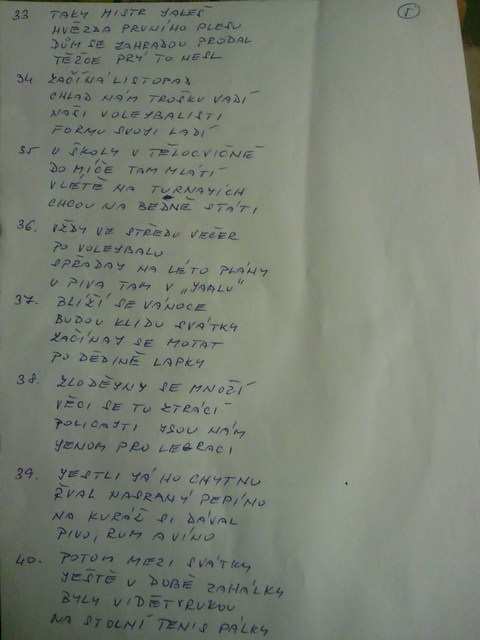 5
33 TAKY MISTR JALEŠ
HVĚZDA PRVNÍHO PLESU
DŮM SE ZAHRADOU PRODAL
TĚŽCE PRÝ TO NESL
34 ZAČÍNÁ LISTOPAD
CHLAD NÁM TROŠKU VADÍ
NAŠI VOLEYBALISTI
FORMU SVOJI LADÍ
35 U ŠKOLY V TĚLOCVIČNĚ
DO MÍČE TAM MLÁTÍ
V LÉTĚ NA TURNAJÍCH
CHCOU NA BEDNĚ STÁTI
36. VŽDY VE STŘEDU VEČER
PO VOLEYBALU
SPŘÁDAJ NA LÉTO PLÁNY
U PIVA TAM V „JAALU"
37. BLÍŽÍ SE VÁNOCE
BUDOU KLIDU SVÁTKY
ZAČÍNAJ SE MOTAT
PO DĚDINĚ LAPKY
38. ZLODĚJNY SE MNOŽÍ
VĚCI SE TU ZTRÁCÍ
POLICAJTI JSOU NÁM
JENOM PRO LEGRACI
39. JESTLI JÁ HO CHYTNU
ŘVAL NASRANÝ PEPÍNO
NA KURÁŽ SI DÁVAL
PIVO, RUM A VÍNO
40. POTOM MEZI SVÁTKY
JEŠTĚ V DOBĚ ZAHÁLKY
BYLY VIDĚT V RUKOU
NA STOLNÍ TENIS PÁLKY